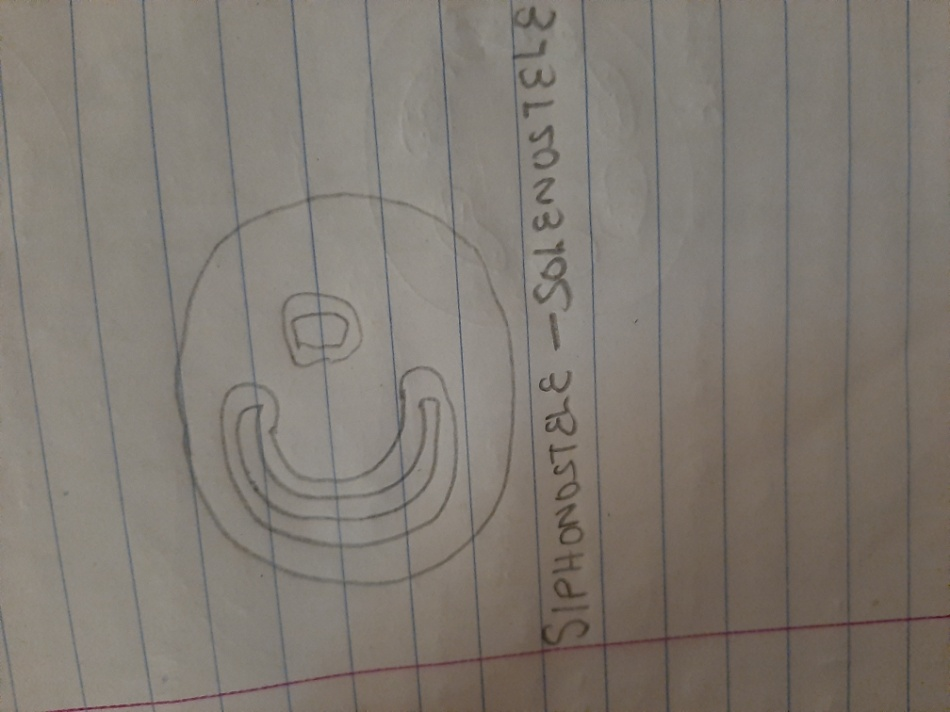 SIPHONOSTELE - SOLENOSTELE